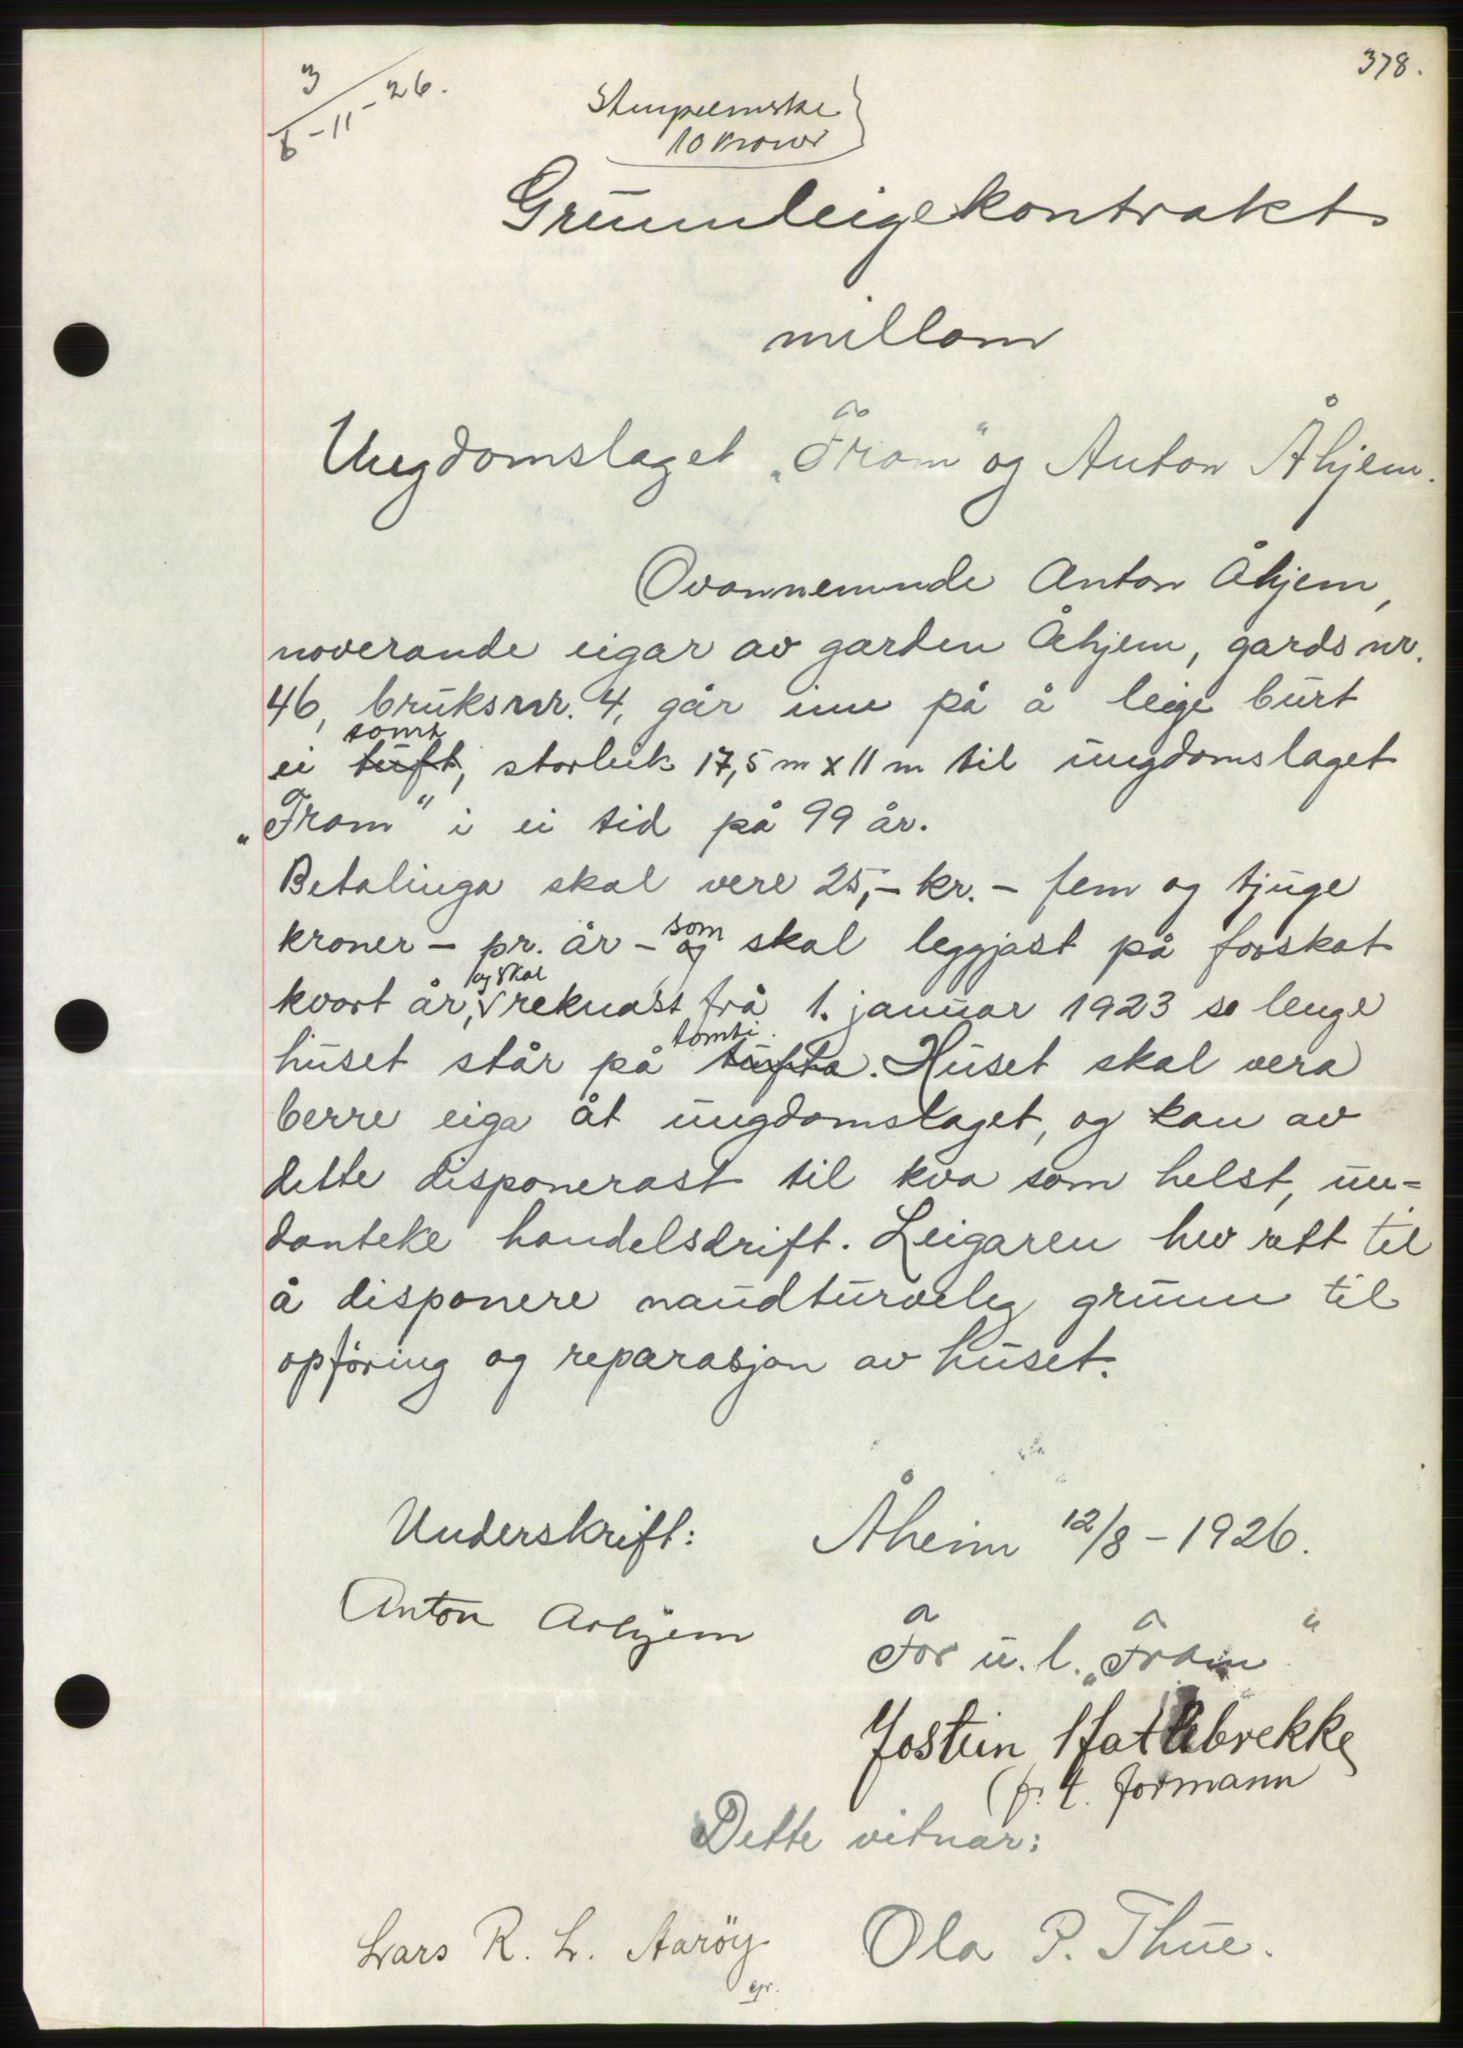 378.
3/6-11-26.
Stempelmerke
10 kroner
Grunnleigekontrakt
millom
Ungdomslaget „Fram“ og Anton Åhjem.
Ovannemnde Anton Åhjem,
noverande eigar av garden Åhjem, gards nr.
46, bruksnr. 4, går inn på å leige burt
tomt
ei tuft, storleik 17,5 m x 11 m til ungdomslaget
„Fram“ i ei tid på 99 år.
Betalinga skal vere 25,- kr. - fem og tjuge
kroner - pr. år - og som skal leggjast på forskot
kvort år, og skal reknast frå 1. januar 1923 so lenge
tomti
huset står på tufta. Huset skal vera
berre eiga åt ungdomslaget, og kan av
dette disponerast til kva som helst, un-
danteke handelsdrift. Leigaren hev rett til
å disponere naudturveleg grunn til
opføring og reparasjon av huset.
Underskrift: Åheim 12/8-1926.
Anton Aahjem
For u.l. „Fram“
Jostein Hatlebrekke
(p. t. formann
Dette vitnar:
Lars R. L. Aarøy Ola P. Thue.